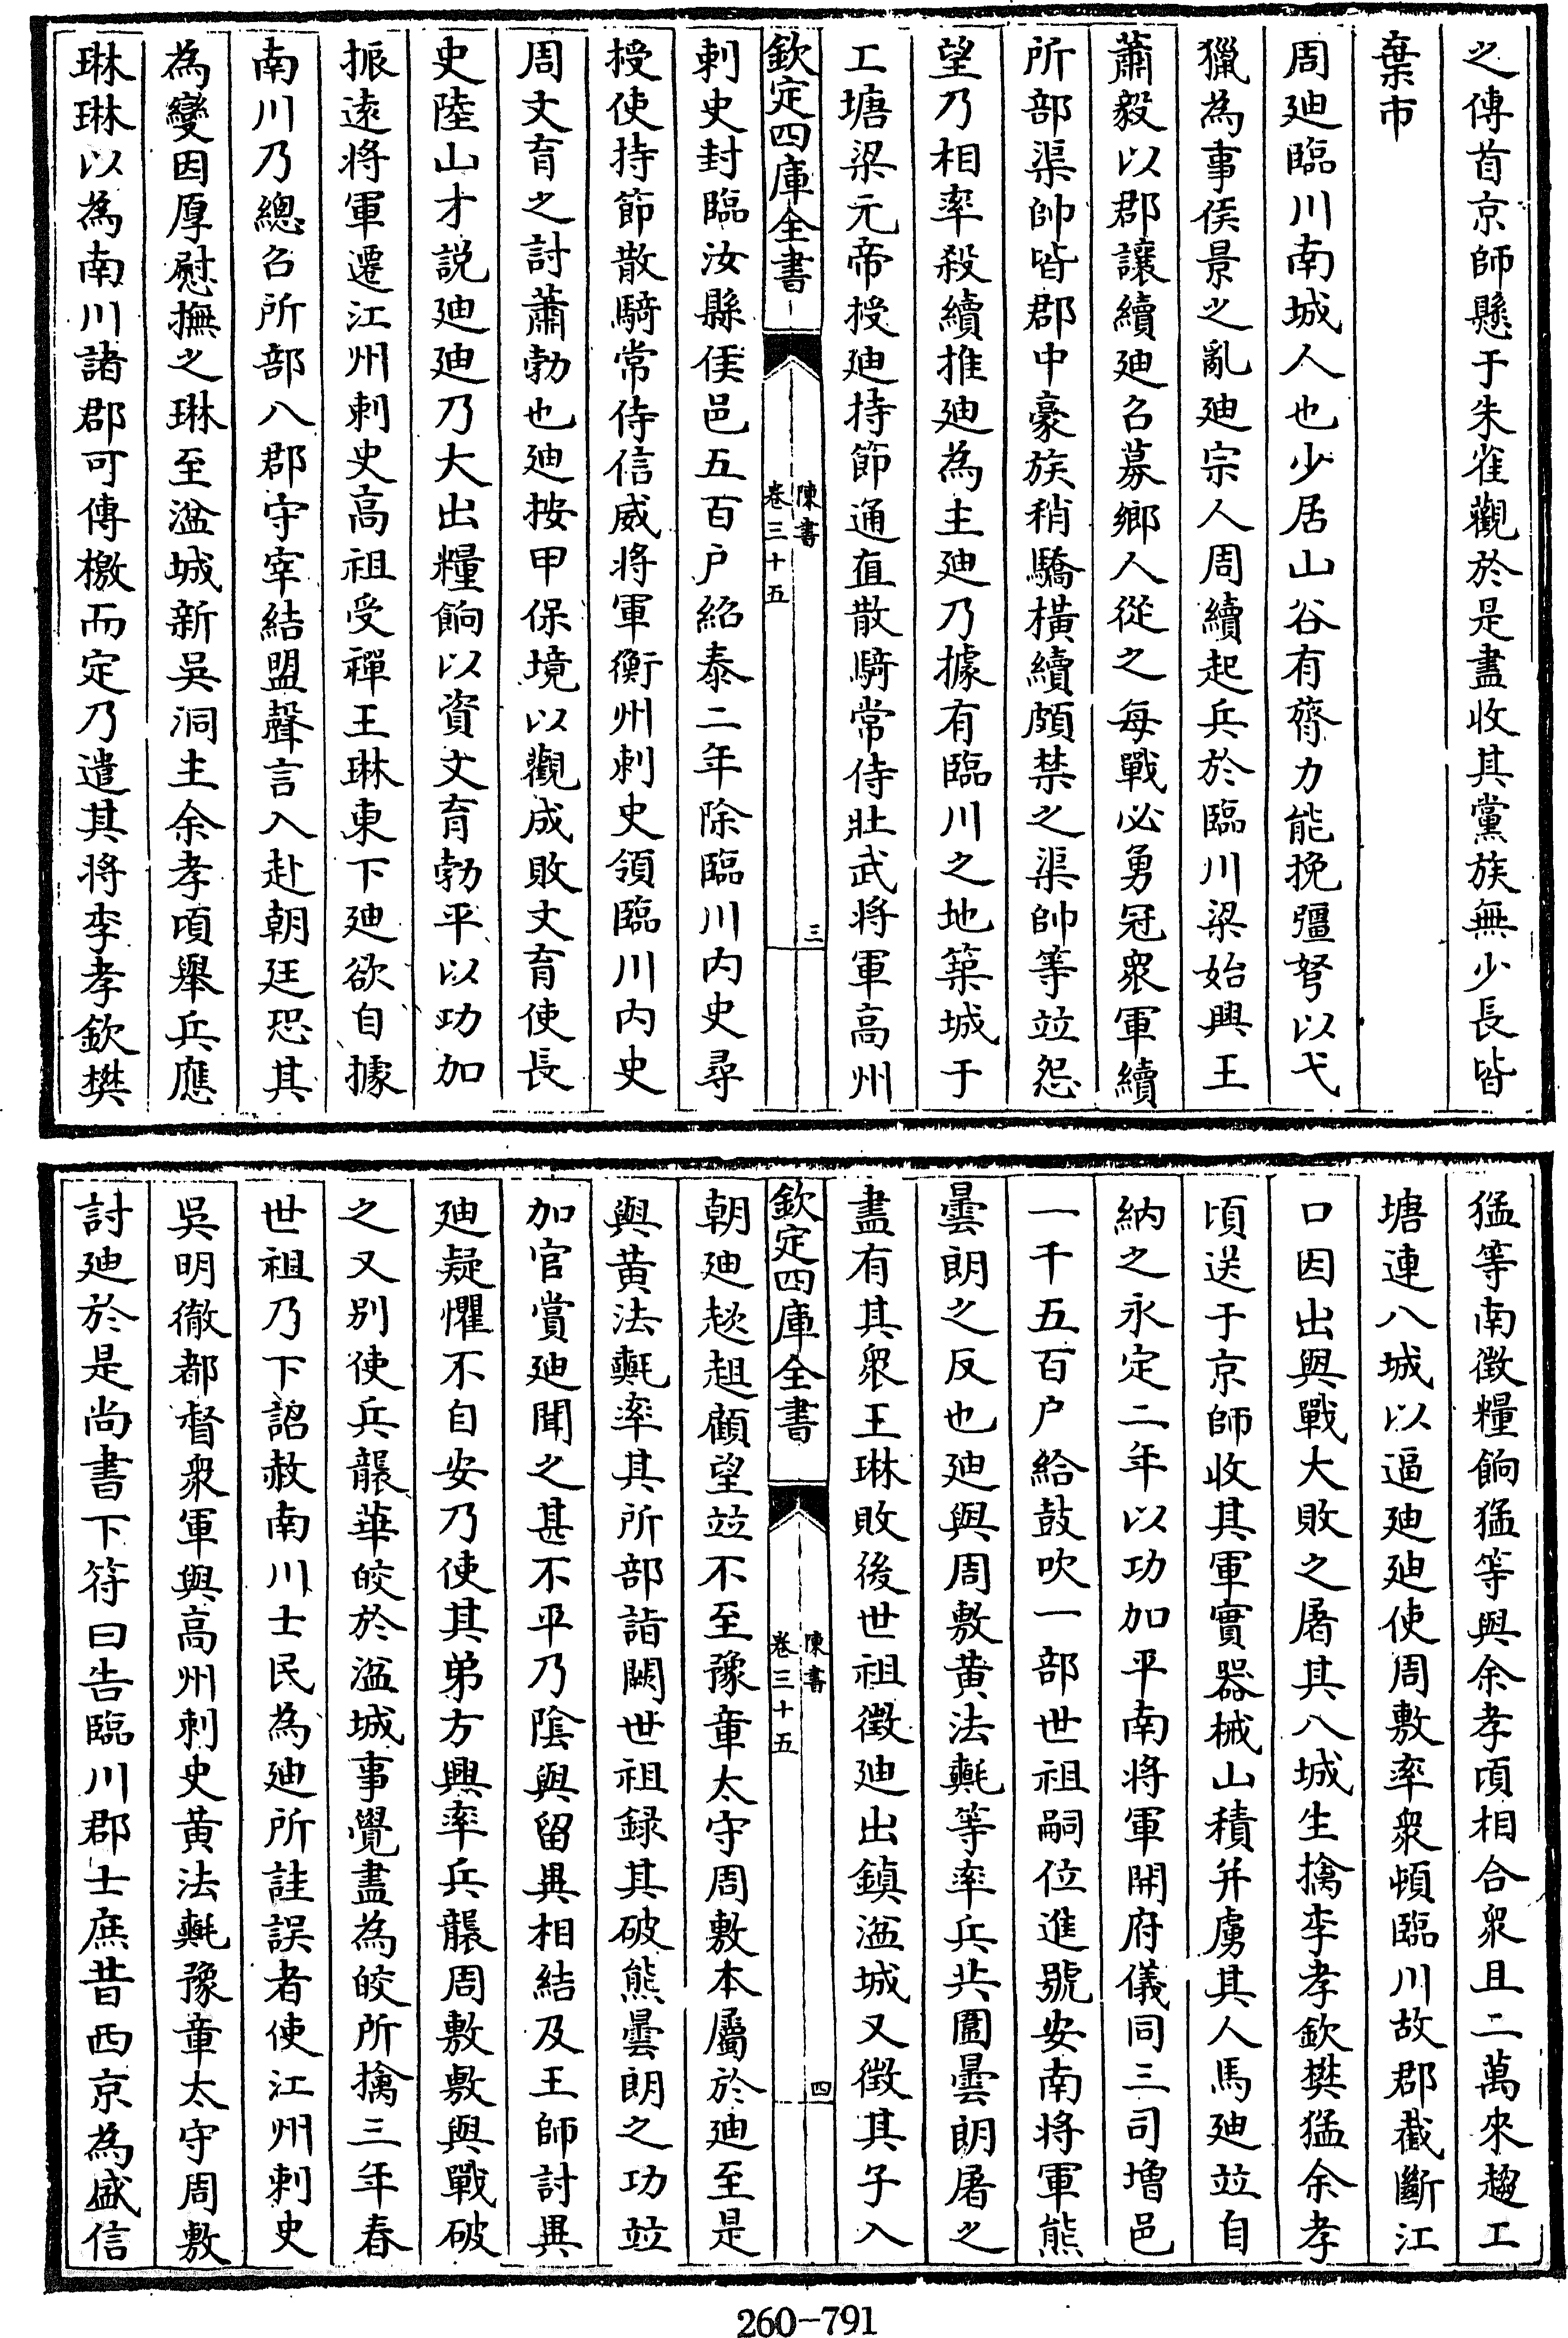 之傳首京師懸于朱雀觀於是盡收其黨族無少長皆
棄市
周廸臨川南城人也少居山谷有膂力能挽彊弩以弋
獵為事侯景之亂廸宗人周續起兵於臨川梁始興王
蕭毅以郡讓續廸召募鄉人從之每戰必勇冠衆軍續
所部渠帥皆郡中豪族稍驕橫續頗禁之渠帥等竝怨
望乃相率殺續推廸為主廸乃據有臨川之地築城于
工塘梁元帝授廸持節通直散騎常侍壯武將軍高州
欽定四庫全書
陳書
卷三十五
三
刺史封臨汝縣侯邑五百户紹泰二年除臨川内史尋
授使持節散騎常侍信威將軍衡州刺史領臨川内史
周文育之討蕭勃也廸按甲保境以觀成敗文育使長
史陸山才説廸廸乃大出糧餉以資文育勃平以功加
振遠將軍遷江州刺史高祖受禪王琳東下廸欲自據
南川乃總召所部八郡守宰結盟聲言入赴朝廷恐其
為變因厚慰撫之琳至湓城新吳洞主余孝頃舉兵應
琳琳以為南川諸郡可傳檄而定乃遣其將李孝欽樊
猛等南徵糧餉猛等與余孝頃相合衆且二萬來趨工
塘連八城以逼廸廸使周敷率衆頓臨川故郡截斷江
口因出與戰大敗之屠其八城生擒李孝欽樊猛余孝
頃送于京師收其軍實器械山積并虜其人馬廸竝自
納之永定二年以功加平南將軍開府儀同三司增邑
一千五百户給鼓吹一部世祖嗣位進號安南將軍熊
曇朗之反也廸與周敷黄法𣰰等率兵共圍曇朗屠之
盡有其衆王琳敗後世祖徵廸出鎮湓城又徵其子入
欽定四庫全書
陳書
卷三十五
四
朝廸趑趄顧望竝不至豫章太守周敷本屬於廸至是
與黄法𣰰率其所部詣闕世祖録其破熊曇朗之功竝
加官賞廸聞之甚不平乃陰與留異相結及王師討異
廸疑懼不自安乃使其弟方興率兵襲周敷敷與戰破
之又别使兵襲華皎於湓城事覺盡為皎所擒三年春
世祖乃下詔赦南川士民為廸所詿誤者使江州刺史
吳明徹都督衆軍與高州刺史黄法𣰰豫章太守周敷
討廸於是尚書下符曰告臨川郡士庶昔西京為盛信
260-791